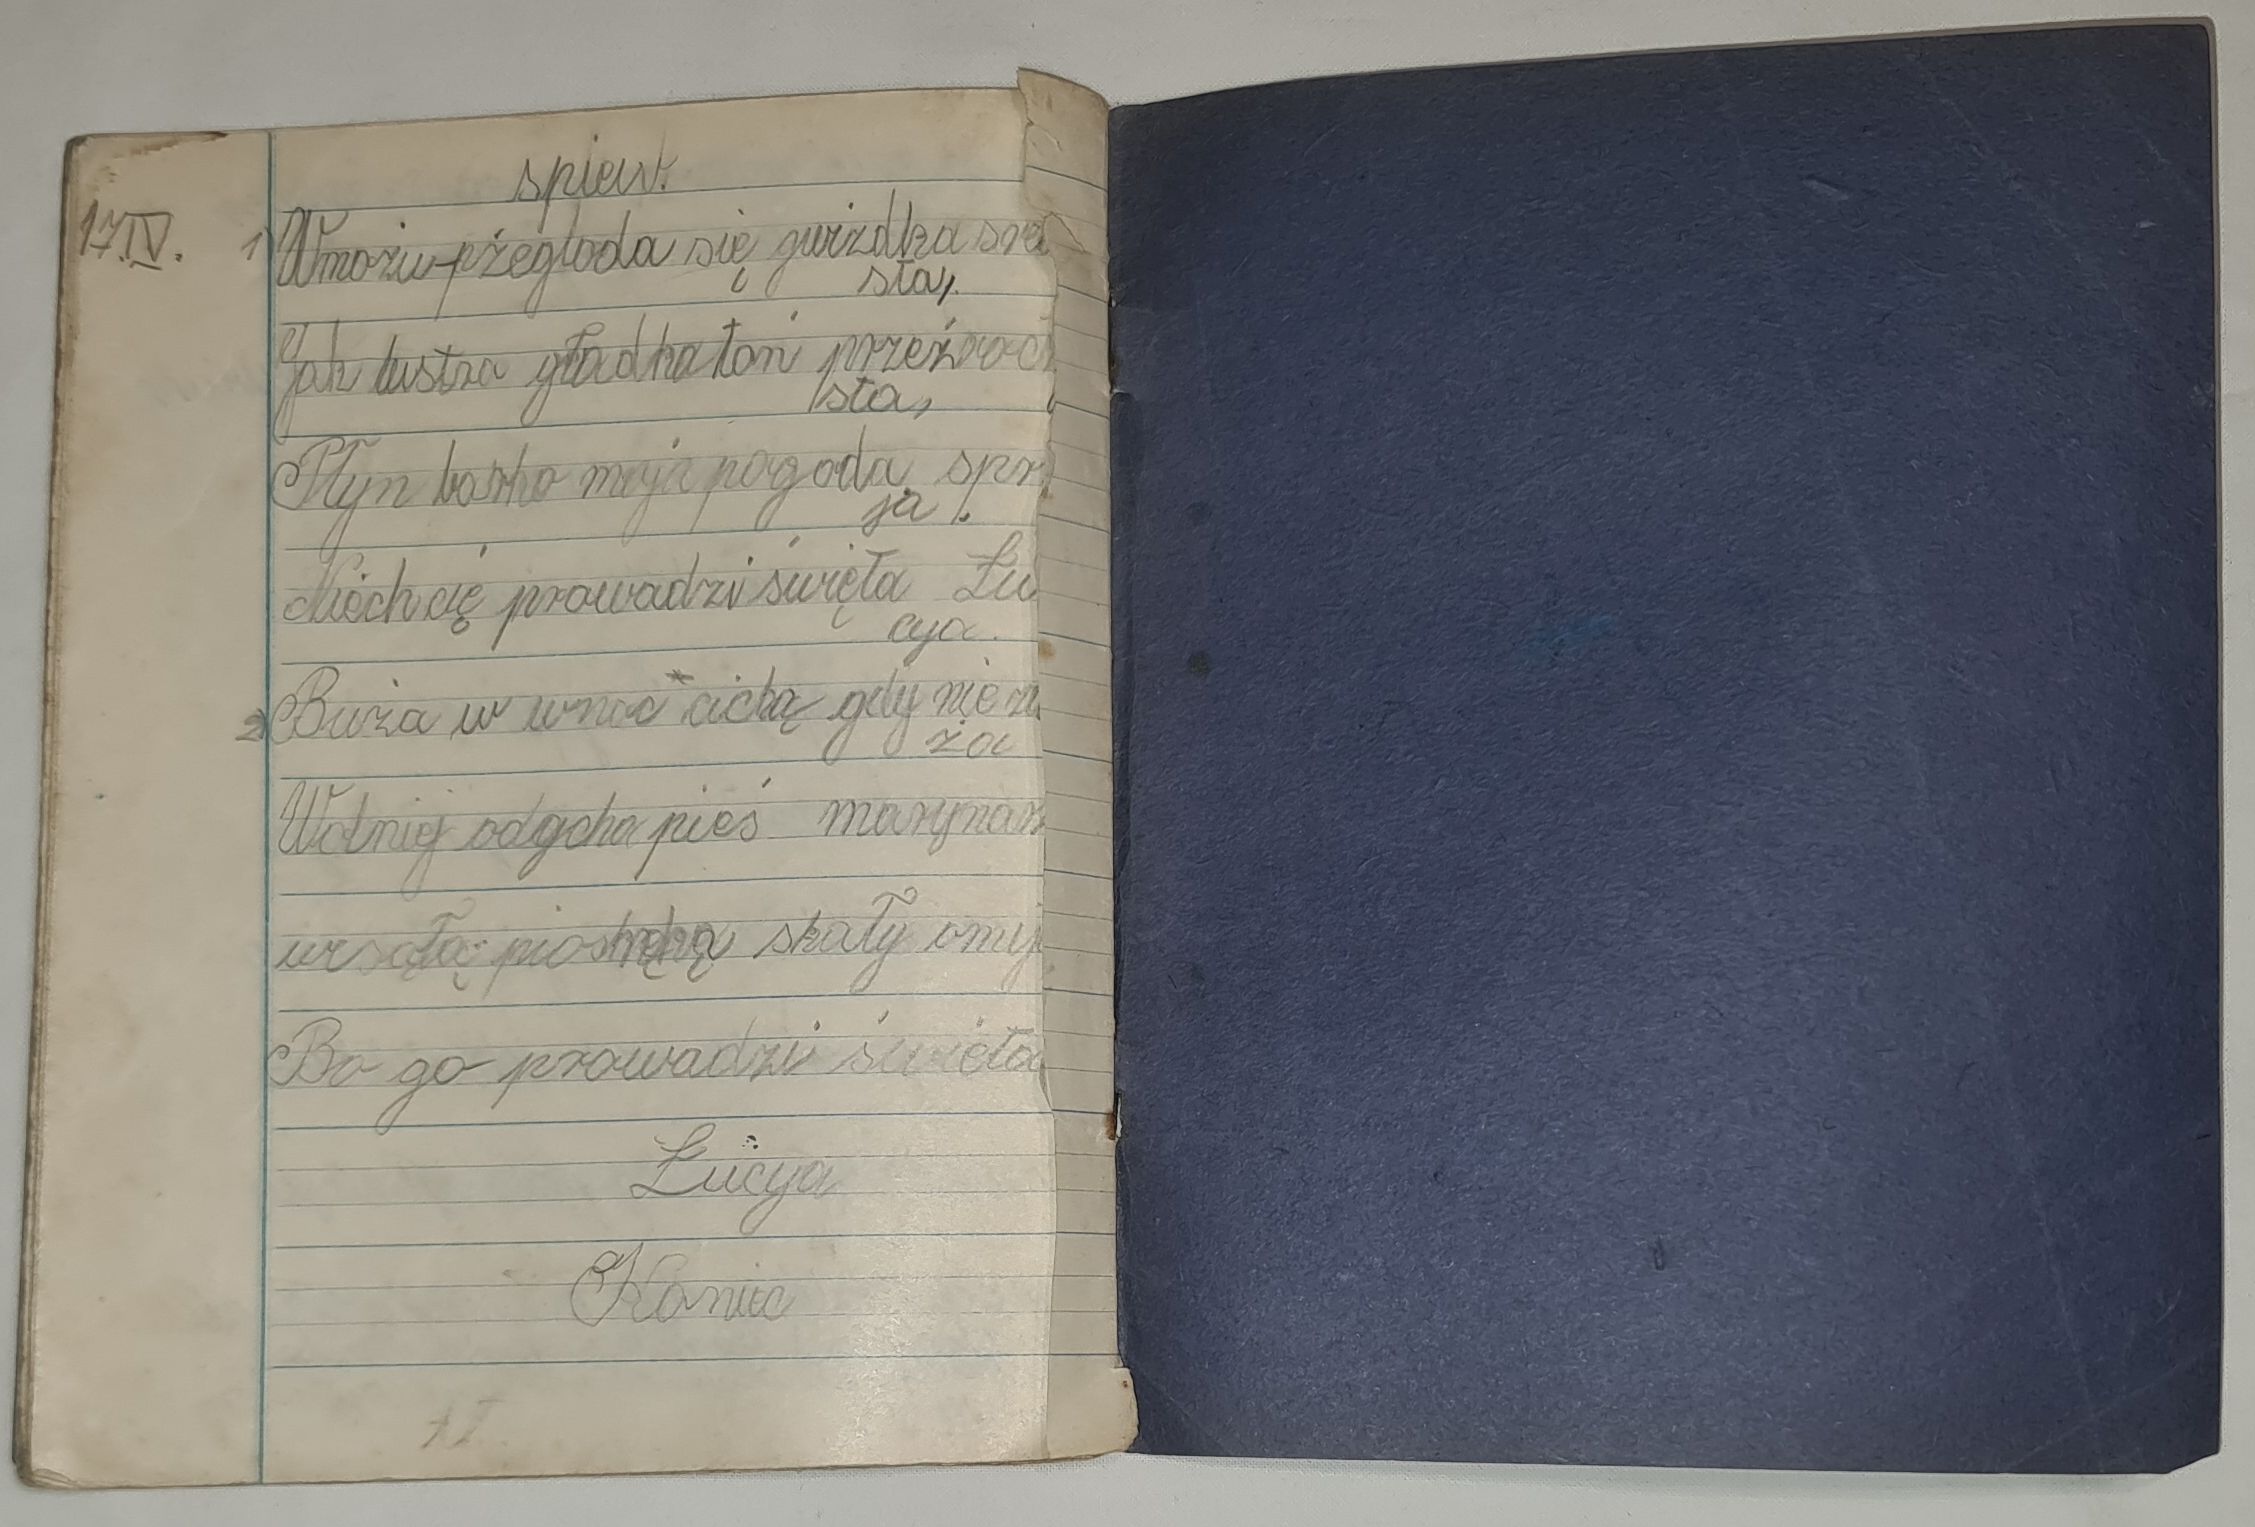 spiew.
17.IV. 1) Wmożu pżegloda się gwizdka sre
sta,
Jak lustra gładka toń przeźroc
sta,
Płyn barko moja pogoda spr
ja.
Niech cię prowadzi święta Lu
cya.
2) Buża w wnoc cichą gdy nie
ża
Wolniej odgcha pieś marynar
piosnką skały omyj
Bo go prowadzi święta
Lucya
Koniec